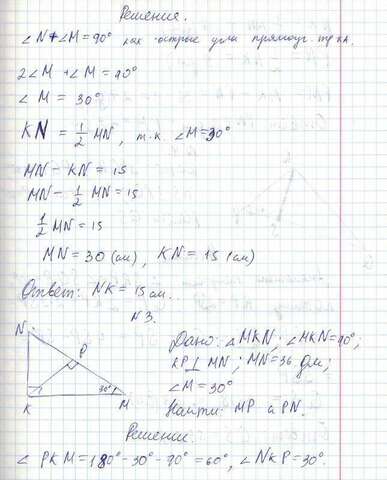 Решение.
∠N+∠M=90° как острые углы прямоуг. тр-ка.
2∠M+∠M=90°
∠M=30°
KN=1/2 MN, т.к. ∠M=30°
MN-KN=15
MN-1/2 MN=15
1/2 MN=15
MN=30 (см), KN=15 (см)
Ответ: NK=15 см.
№3.
N
P
30°
K
M
Дано: △MKN; ∠MKN=90°;
KP⊥MN; MN=36 дм;
∠M=30°
Найти: MP и PN.
Решение
∠PKM=180°-30°-90°=60°, ∠NKP=30°.